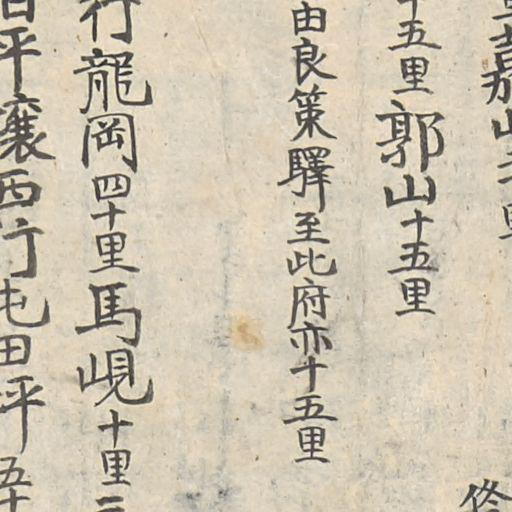 嘉山
十五里郭山十五里
由良策驛至此府亦十五里
行龍岡四十里馬峴十里
平壤西行屯田坪五十